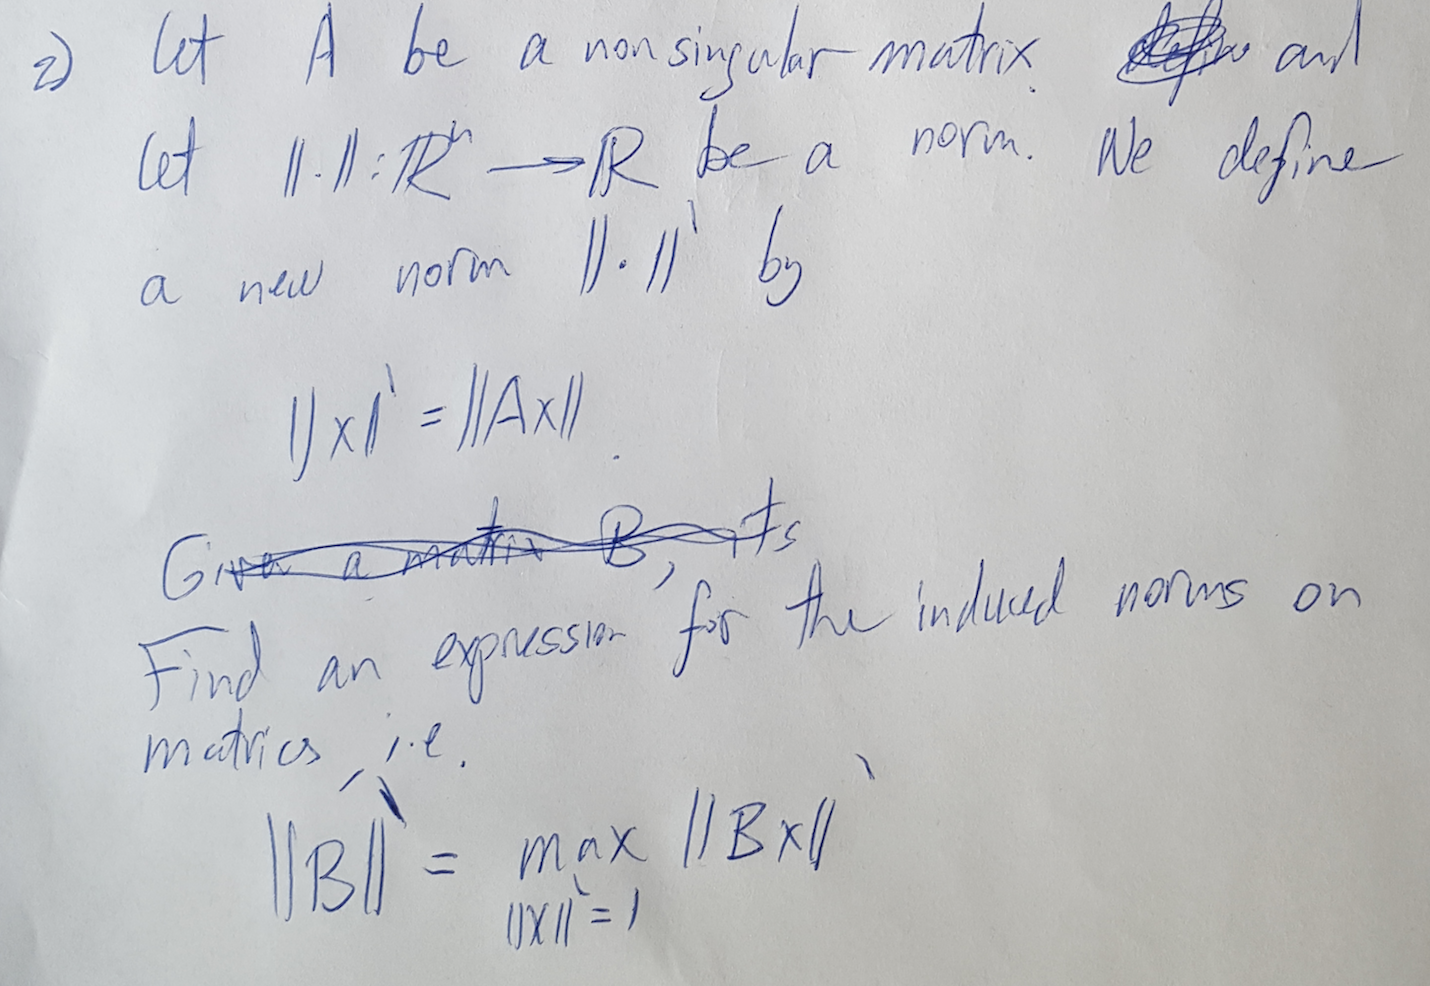 2) Let A be a nonsingular matrix. and
let ||.||: ℝⁿ → ℝ be a norm. We define
a new norm ||·||' by
||x||' = ||Ax||.
Given a matrix B, its
Find an expression for the induced norms on
matrics, i.e.
||B||' = max ||Bx||'
||x||' = 1